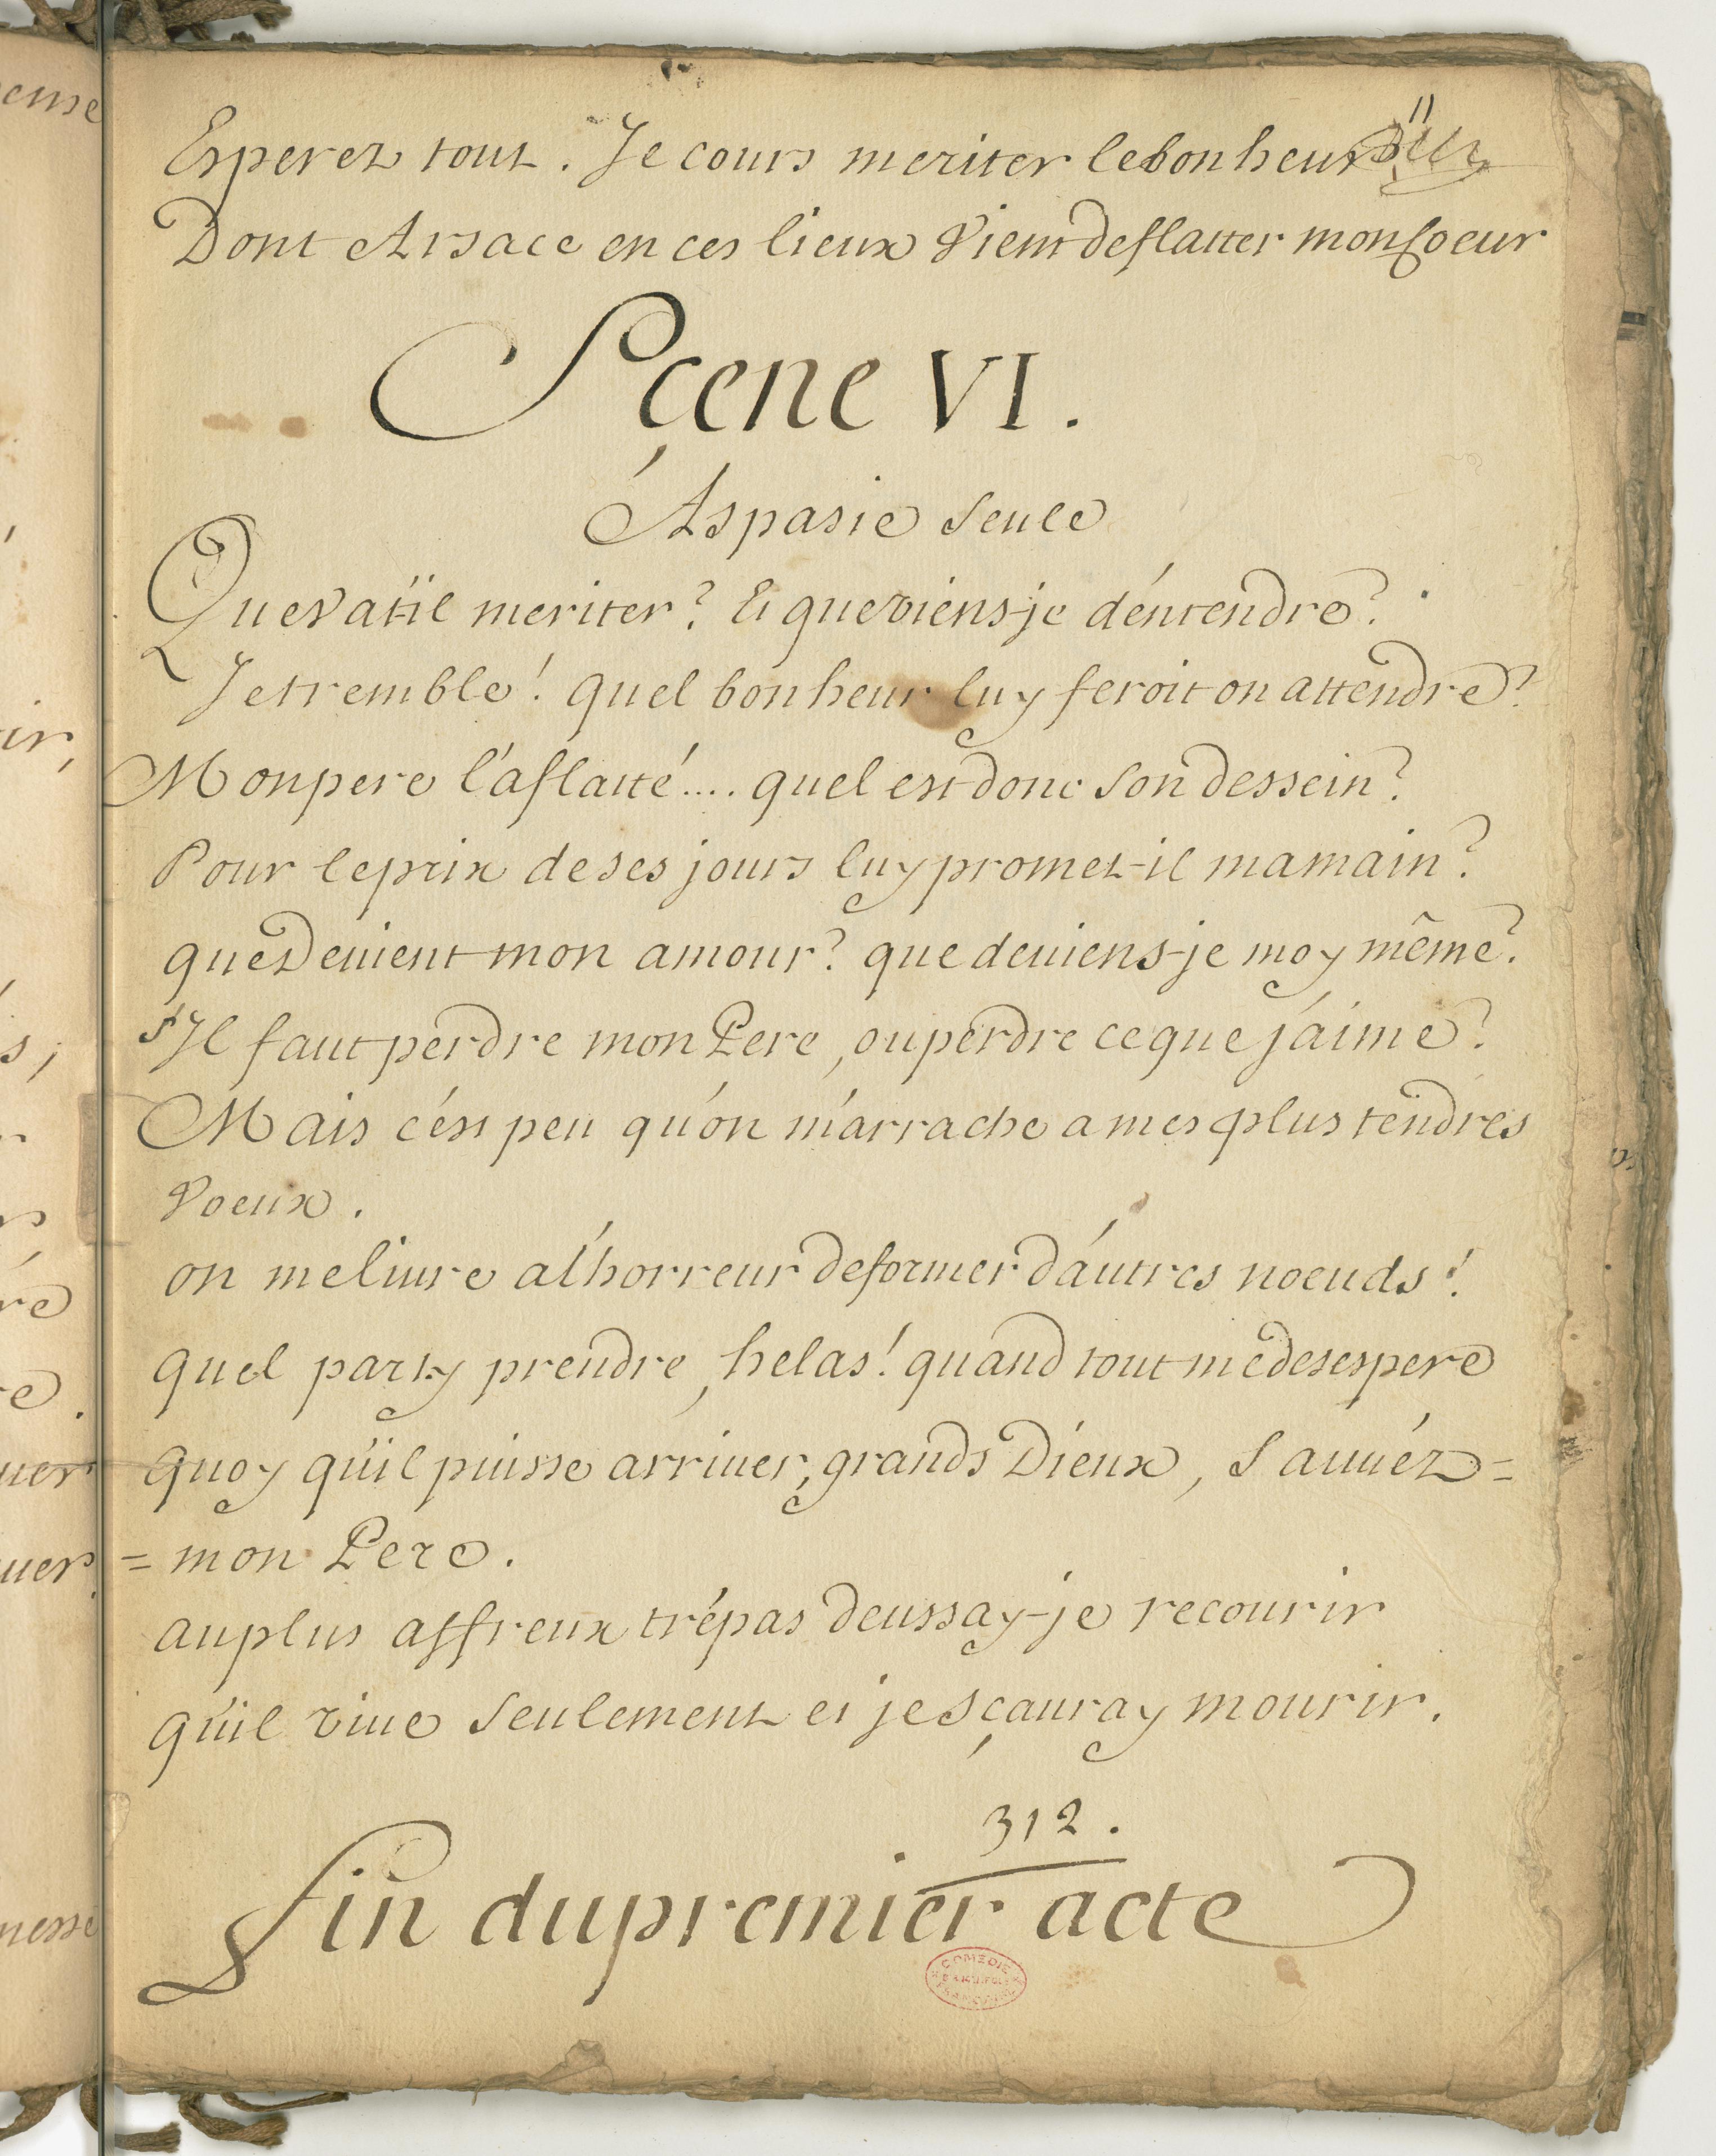 11
Esperez tout. Je cours meriter le bonheur
Dont Arsace en ces lieux Vient de flatter mon Coeur
Scene VI.
Aspasie seule
Que Va t'il meriter? Et que viens-je d'entendre?
Je tremble! quel bonheur luy feroit on attendre?
Mon pere l'a flatté.... quel est donc son dessein?
Pour le prix de ses jours luy promet-il ma main?
que Devient mon amour? que deviens-je moy même?
s'Il faut perdre mon Pere, ou perdre ce que j'aime?
Mais c'est peu qu'on m'arrache a mes plus tendres
Voeux.
on me livre a l'horreur de former d'autres noeuds!
quel party prendre, helas! quand tout me desespere
quoy qu'il puisse arriver, grands Dieux, sauvéz=
=mon Pere.
au plus affreux trépas deussay-je recourir
qu'il vive seulement et je sçauray mourir.
312.
fin du premier acte
COMEDIE
FRANCAISE
cuse
ir,
s,
re
e.
uer
uer.
nesse